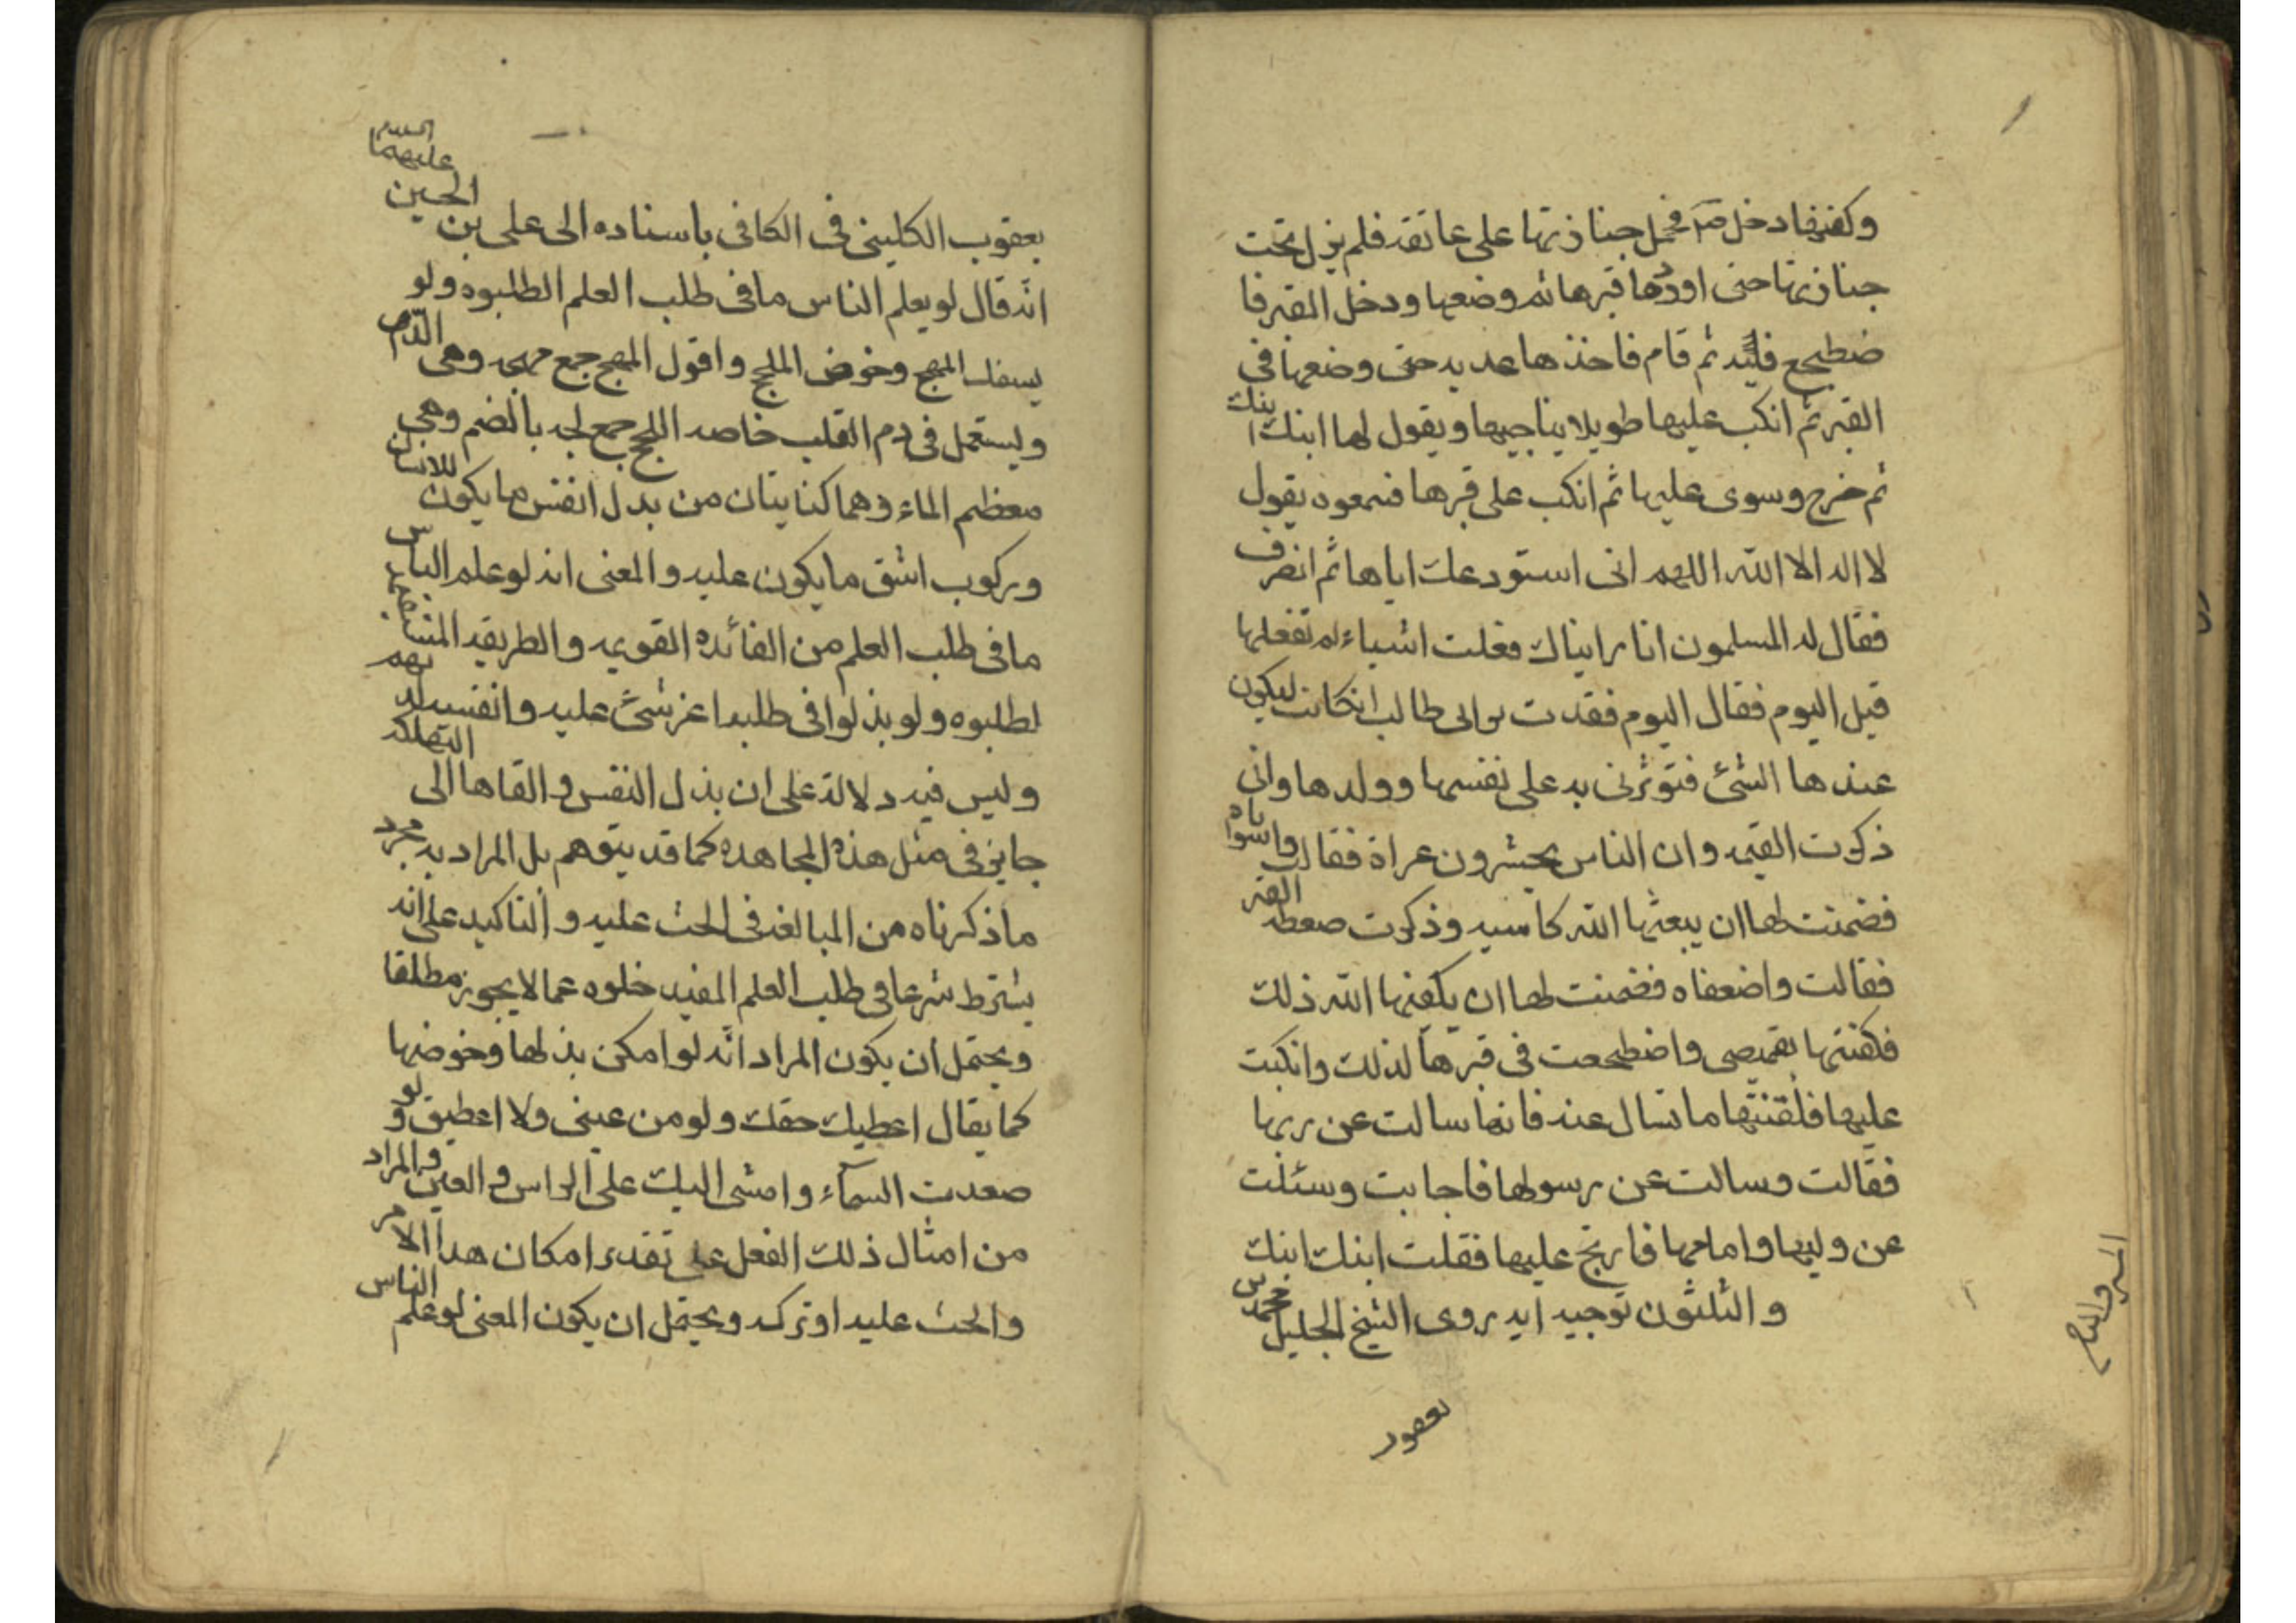 وكفنها دخل صم فحمل جنازتها على عاتقه فلم يزل تحت
جنازتها حتى اوردها قبرها ثم وضعها ودخل القبر فا
ضطجع فيه ثم قام فاخذها على يديه حتى وضعها فى
القبر ثم انكب عليها طويلا يناجيها ويقول لها ابنك ابنك
ثم خرج وسوى عليها ثم انكب على قبرها فسمعوه يقول
لا اله الا الله اللهم انى استودعك اياها ثم انصرف
فقال له المسلمون انا رايناك فعلت اشياء لم تفعلها
قبل اليوم فقال اليوم فقدت بر ابى طالب انكانت ليكون
عندها الشئ فتؤثرنى به على نفسها وولدها وانى
ذكرت القيمه وان الناس يحشرون عراة فقالت واسواتاه
فضمنت لها ان يبعثها الله كاسيه وذكرت ضغطه القبر
فقالت واضعفاه فضمنت لها ان يكفيها الله ذلك
فكفنتها بقميصى واضطجعت فى قبرها لذلك وانكببت
عليها فلقنتها ما تسال عنه فانها سالت عن ربها
فقالت وسالت عن رسولها فاجابت وسئلت
عن وليها وامامها فارتج عليها فقلت ابنك ابنك
والثلثون توجيه ايه روى الشيخ الجليل محمد بن
يعقوب الكلينى فى الكافى باسناده الى على بن الحسين عليهما السلام
انه قال لو يعلم الناس ما فى طلب العلم لطلبوه ولو
بسفك المهج وخوض اللجج واقول المهج جمع مهجه وهى الدم
ويستعمل فى دم القلب خاصه اللجج جمع لجه بالضم وهى
معظم الماء وهما كنايتان من بذل انفس ما يكون للانسان
وركوب اشق ما يكون عليه والمعنى انه لو علم الناس
ما فى طلب العلم من الفائده القويه والطريقه
لطلبوه ولو بذلوا فى طلبه اعز شئ عليه وانفسه لديهم
وليس فيه دلالة على ان بذل النفس والقاها الى التهلكه
جايز فى مثل هذه المجاهده كما قد يتوهم بل المراد به مجرد
ما ذكرناه من المبالغه فى الحث عليه والتاكيد على انه
يشترط شرعا فى طلب العلم المفيد خلوه عما لا يجوز مطلقا
ويحتمل ان يكون المراد انه لو امكن بذلها وخوضها
كما يقال اعطيك حقك ولو من عينى ولا اعطيق ولو
صعدت السماء وامشى اليك على الراس والعين والمراد
من امثال ذلك الفعل على تقدير امكان هذا الامر
والحث عليه او تركه ويحتمل ان يكون المعنى لو علم الناس